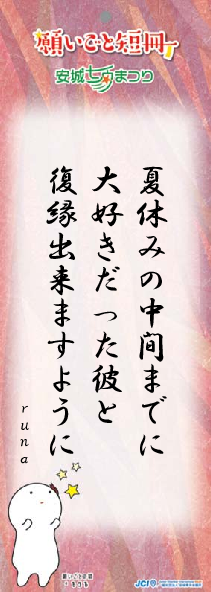 願いごと短冊
安城七夕まつり
夏休みの中間までに
大好きだった彼と
復縁出来ますように
runa
願いごと
きーぼー
JCI